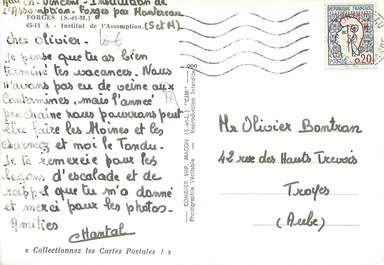 Ch. Vincent - Institution de
l'Assomption - Forges par Montereau
(S et M)
FORGES (S.-et-M.)
45-11 A - Institut de l'Assomption.
Cher Olivier.
Je pense que tu as bien
terminé tes vacances. Nous
n'avons pas eu de veine aux
Contamines, mais l'année
prochaine nous pourrons peut
être faire les Moines et les
et moi le Tondu.
Je te remercie pour les
leçons d'escalade et de
rappel que tu m'a donné
et merci pour les photos.
Amitiés
Chantal
« Collectionnez les Cartes Postales ! »
COMBIER IMP. MACON (S.-et-L.) "CIM"
Photographie Véritable - Reproduction Interdite
REPUBLIQUE FRANÇAISE
POSTES
0,20
Mr Olivier Bontran
42 rue des Hauts Trevois
Troyes
(Aube)